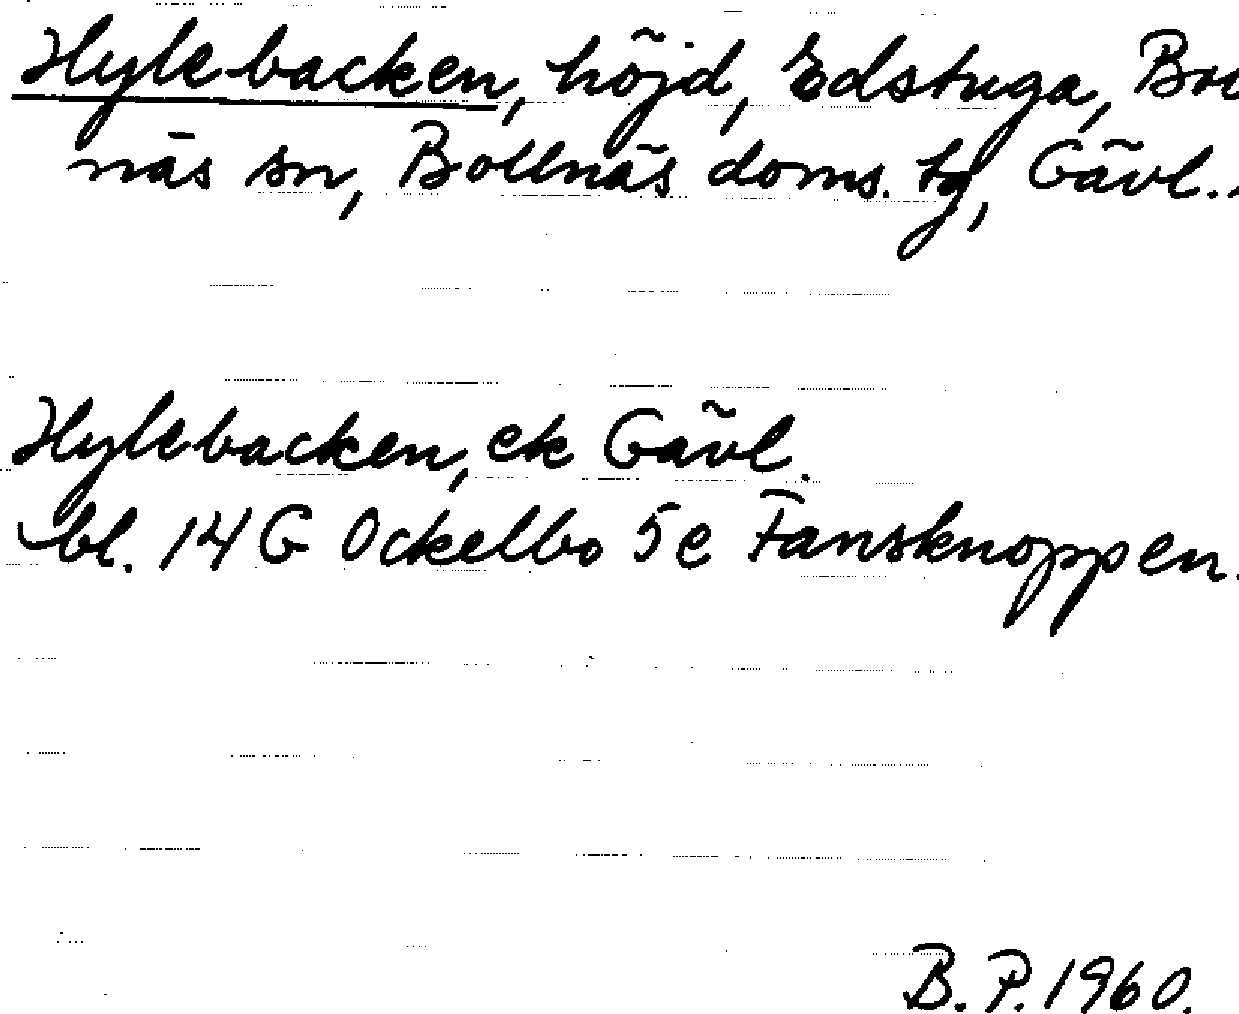 Hylebacken, höjd, Edstuga, Bol
näs sn, Bollnäs doms. tg, Gävl..
Hylebacken, ek Gävl.
bl. 14 G Ockelbo 5 e Fansknoppen.
B. P. 1960.